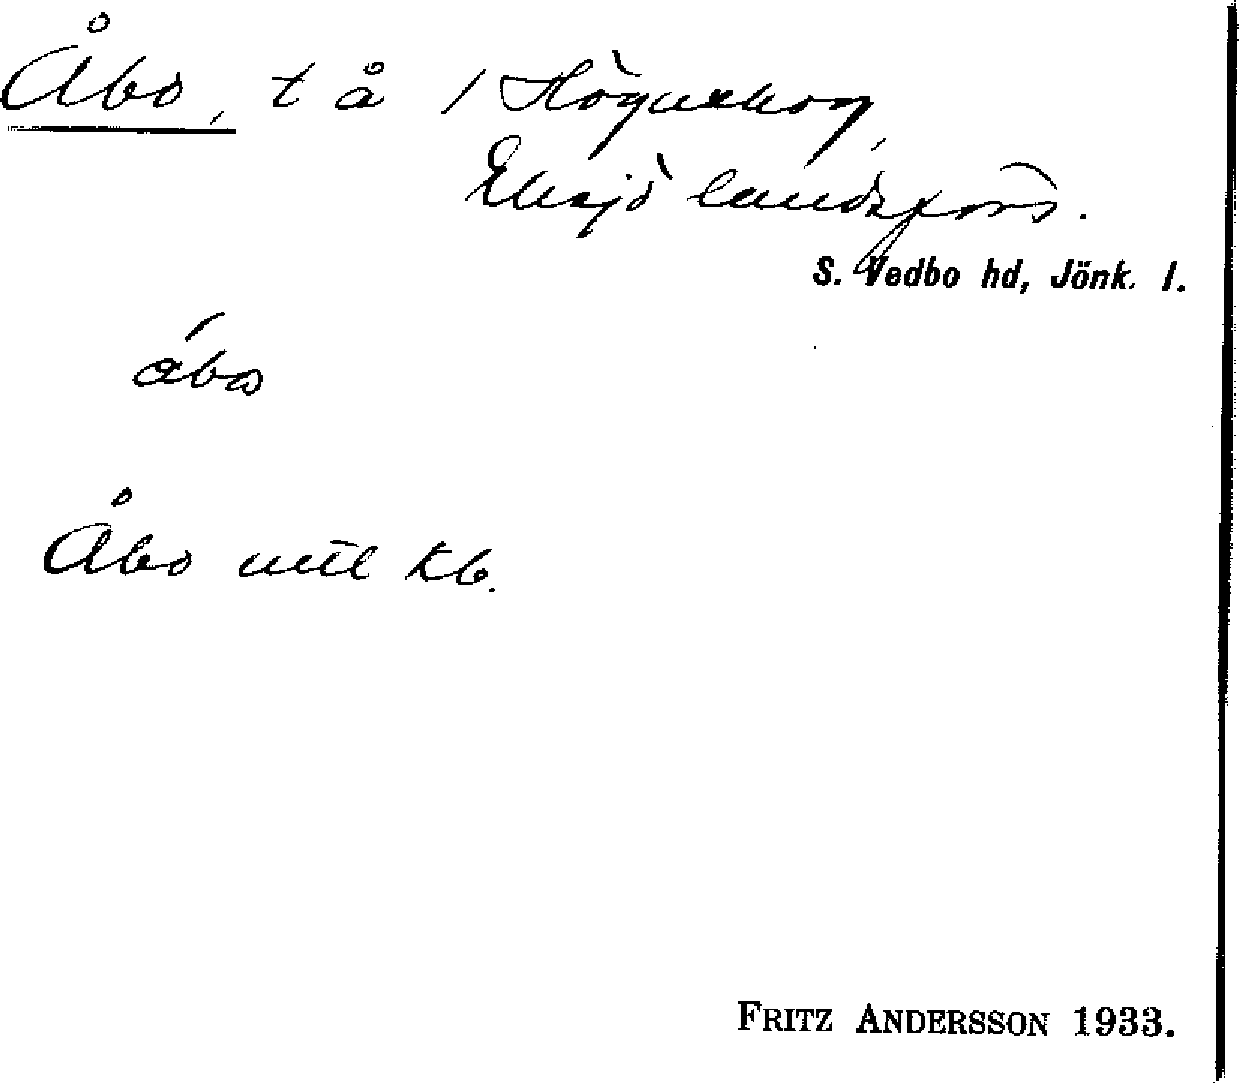 Åbo, t å / Högnaskog,
Eksjö landsförs.
S. Vedbo hd, Jönk. l.
Åbo mtl Kb.
FRITZ ANDERSSON 1933.